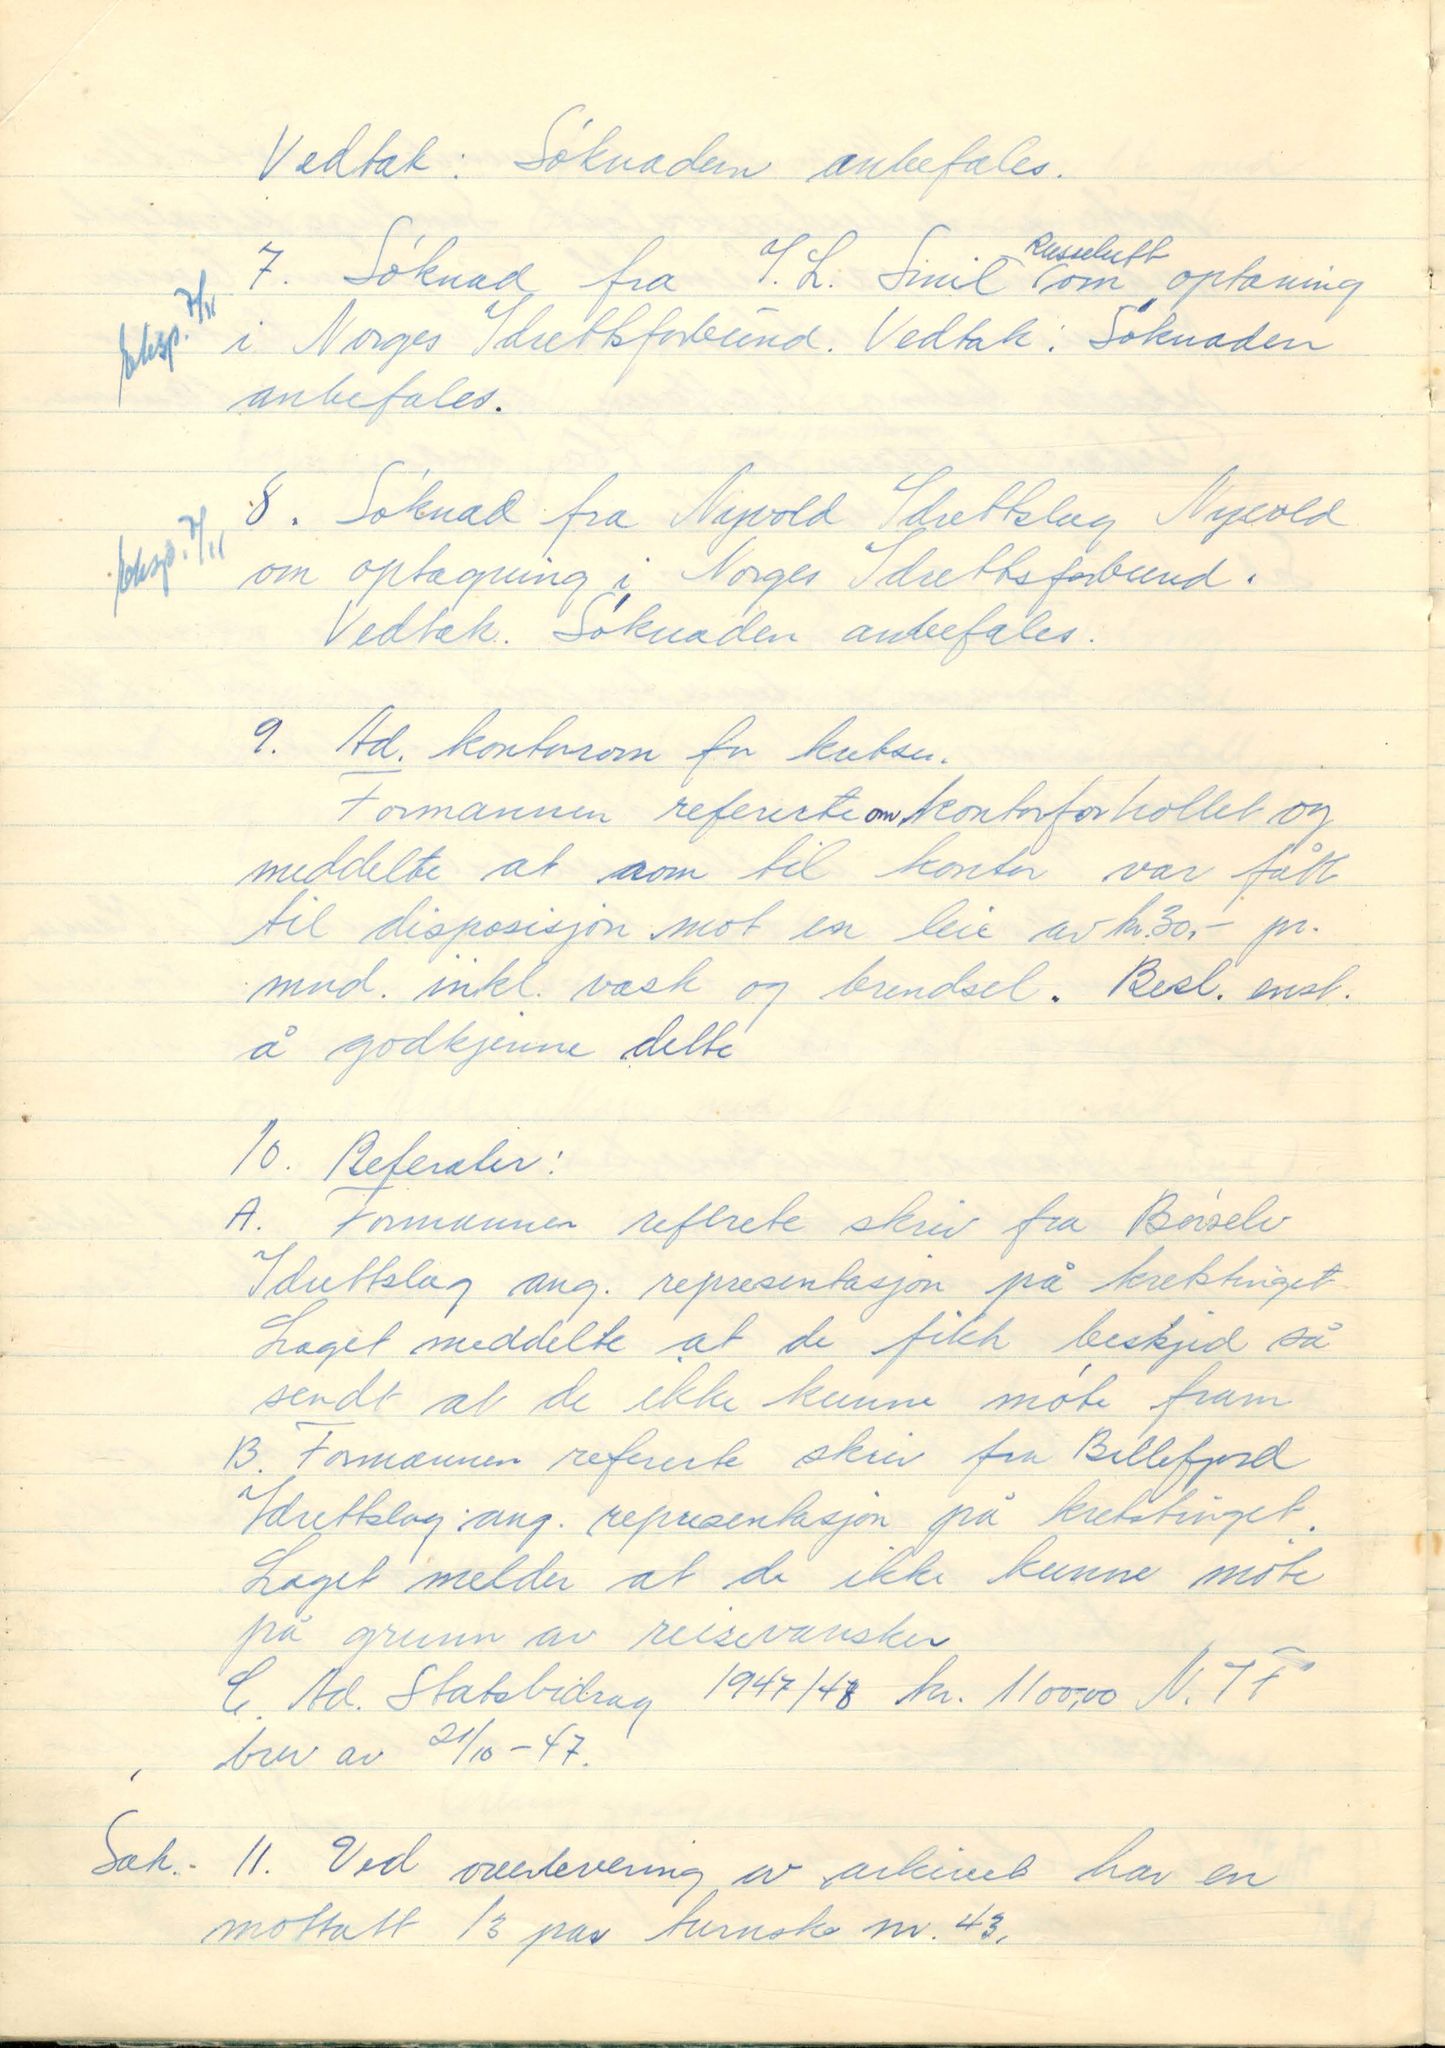 Vedtak: Søknaden anbefales.
7. Søknad fra I.L. Smil Russeluft om optaning
eksp. 7/11
i Norges Idrettsforbund. Vedtak: Søknaden
anbefales.
8. Søknad fra Nyvold Idrettslag Nyvold
eksp. 7/11
om optagning i Norges Idrettsforbund.
Vedtak. Søknaden anbefales.
9. Ad. kontorrom for kretsen.
Formannen refererte om kontorforholdet og
meddelte at rom til kontor var fått
til disposisjon mot en leie av kr. 30,- pr.
mnd. inkl. vask og brendsel. Besl. enst.
å godkjenne dette
10. Referater:
A. Formannen referete skriv fra Børselv
Idrettslag ang. representasjon på kretstinget
Laget meddelte at de fikk beskjed så
sendt at de ikke kunne møte fram
B. Formannen refererte skriv fra Billefjord
Idrettslag ang. representasjon på kretstinget.
Laget melder at de ikke kunne møte
på grunn av reisevansker
C. Ad. Statsbidrag 1947/48 kr. 1100,00 N.I.F
brev av 21/10-47.
Sak.- 11. Ved overlevering av arkivet har en
mottatt 13 par turnsko nr. 43.